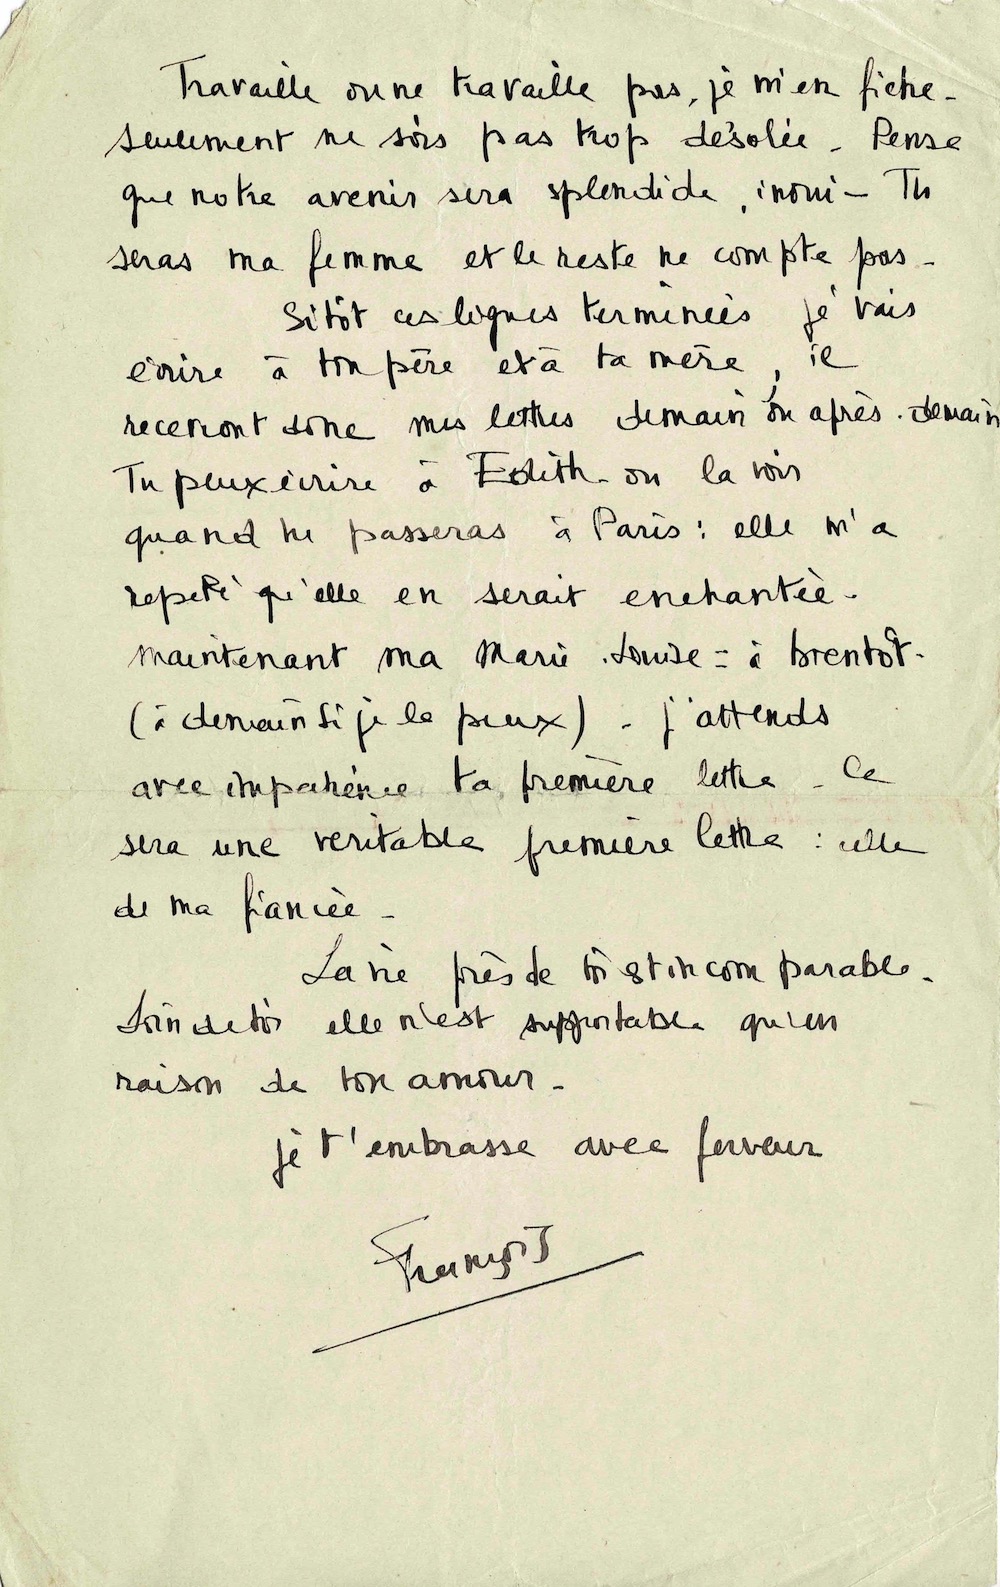 Travaille ou ne travaille pas, je m'en fiche -
seulement ne sois pas trop désolée - Pense
que notre avenir sera splendide, inouï - Tu
seras ma femme et le reste ne compte pas -
Sitôt ces lignes terminées je vais
écrire à ton père et à ta mère, ils
recevront donc mes lettres demain ou après-demain
Tu peux écrire à Edith - ou la voir
quand tu passeras à Paris : elle m'a
repeté qu'elle en serait enchantée -
maintenant ma Marie-Louise = à bientôt -
(à demain si je le peux) - j'attends
avec impatience ta première lettre - Ce
sera une veritable première lettre : celle
de ma fiancée -
La vie près de toi est incomparable -
Loin de toi elle n'est supportable qu'en
raison de ton amour -
je t'embrasse avec ferveur
François